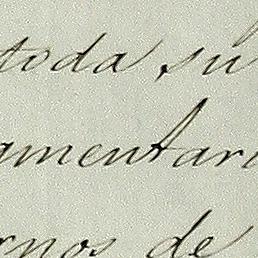 toda su
amentari
rnos de